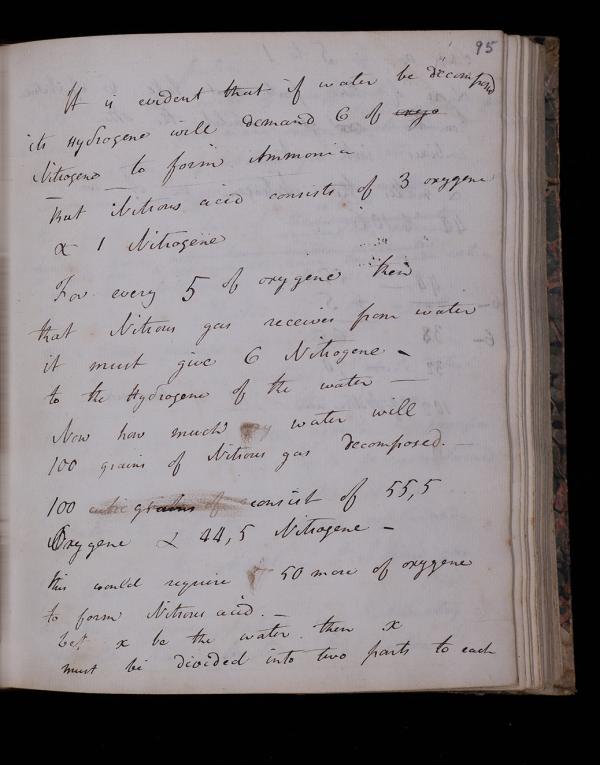 95
It is evident that if water be decomposed
its Hydrogene will demand 6 of oxyge
Nitrogene to form Ammonia
That Nitrous acid consists of 3 oxygene
& 1 Nitrogene
For every 5 of oxygene then
that Nitrous gas receives from water
it must give 6 Nitrogene -
to the Hydrogene of the water -
Now how much water will
100 grains of Nitrous gas decomposed. -
100 cubic grains of consist of 55,5
Oxygene & 44,5 Nitrogene -
this would require 50 more of oxygene
to form Nitrous acid. -
Let x be the water. then x
must be divided into two parts to each